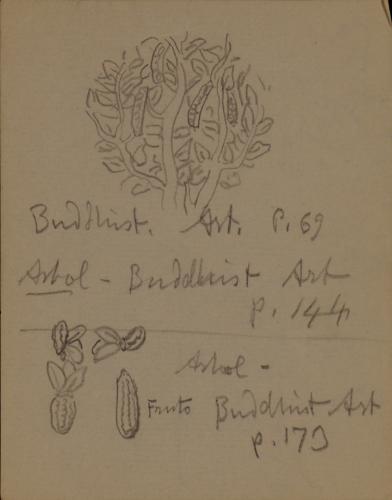 Buddhist. Art. P. 69
Arbol - Buddhist Art
p. 144
Arbol -
Fruto Buddhist Art
p. 173